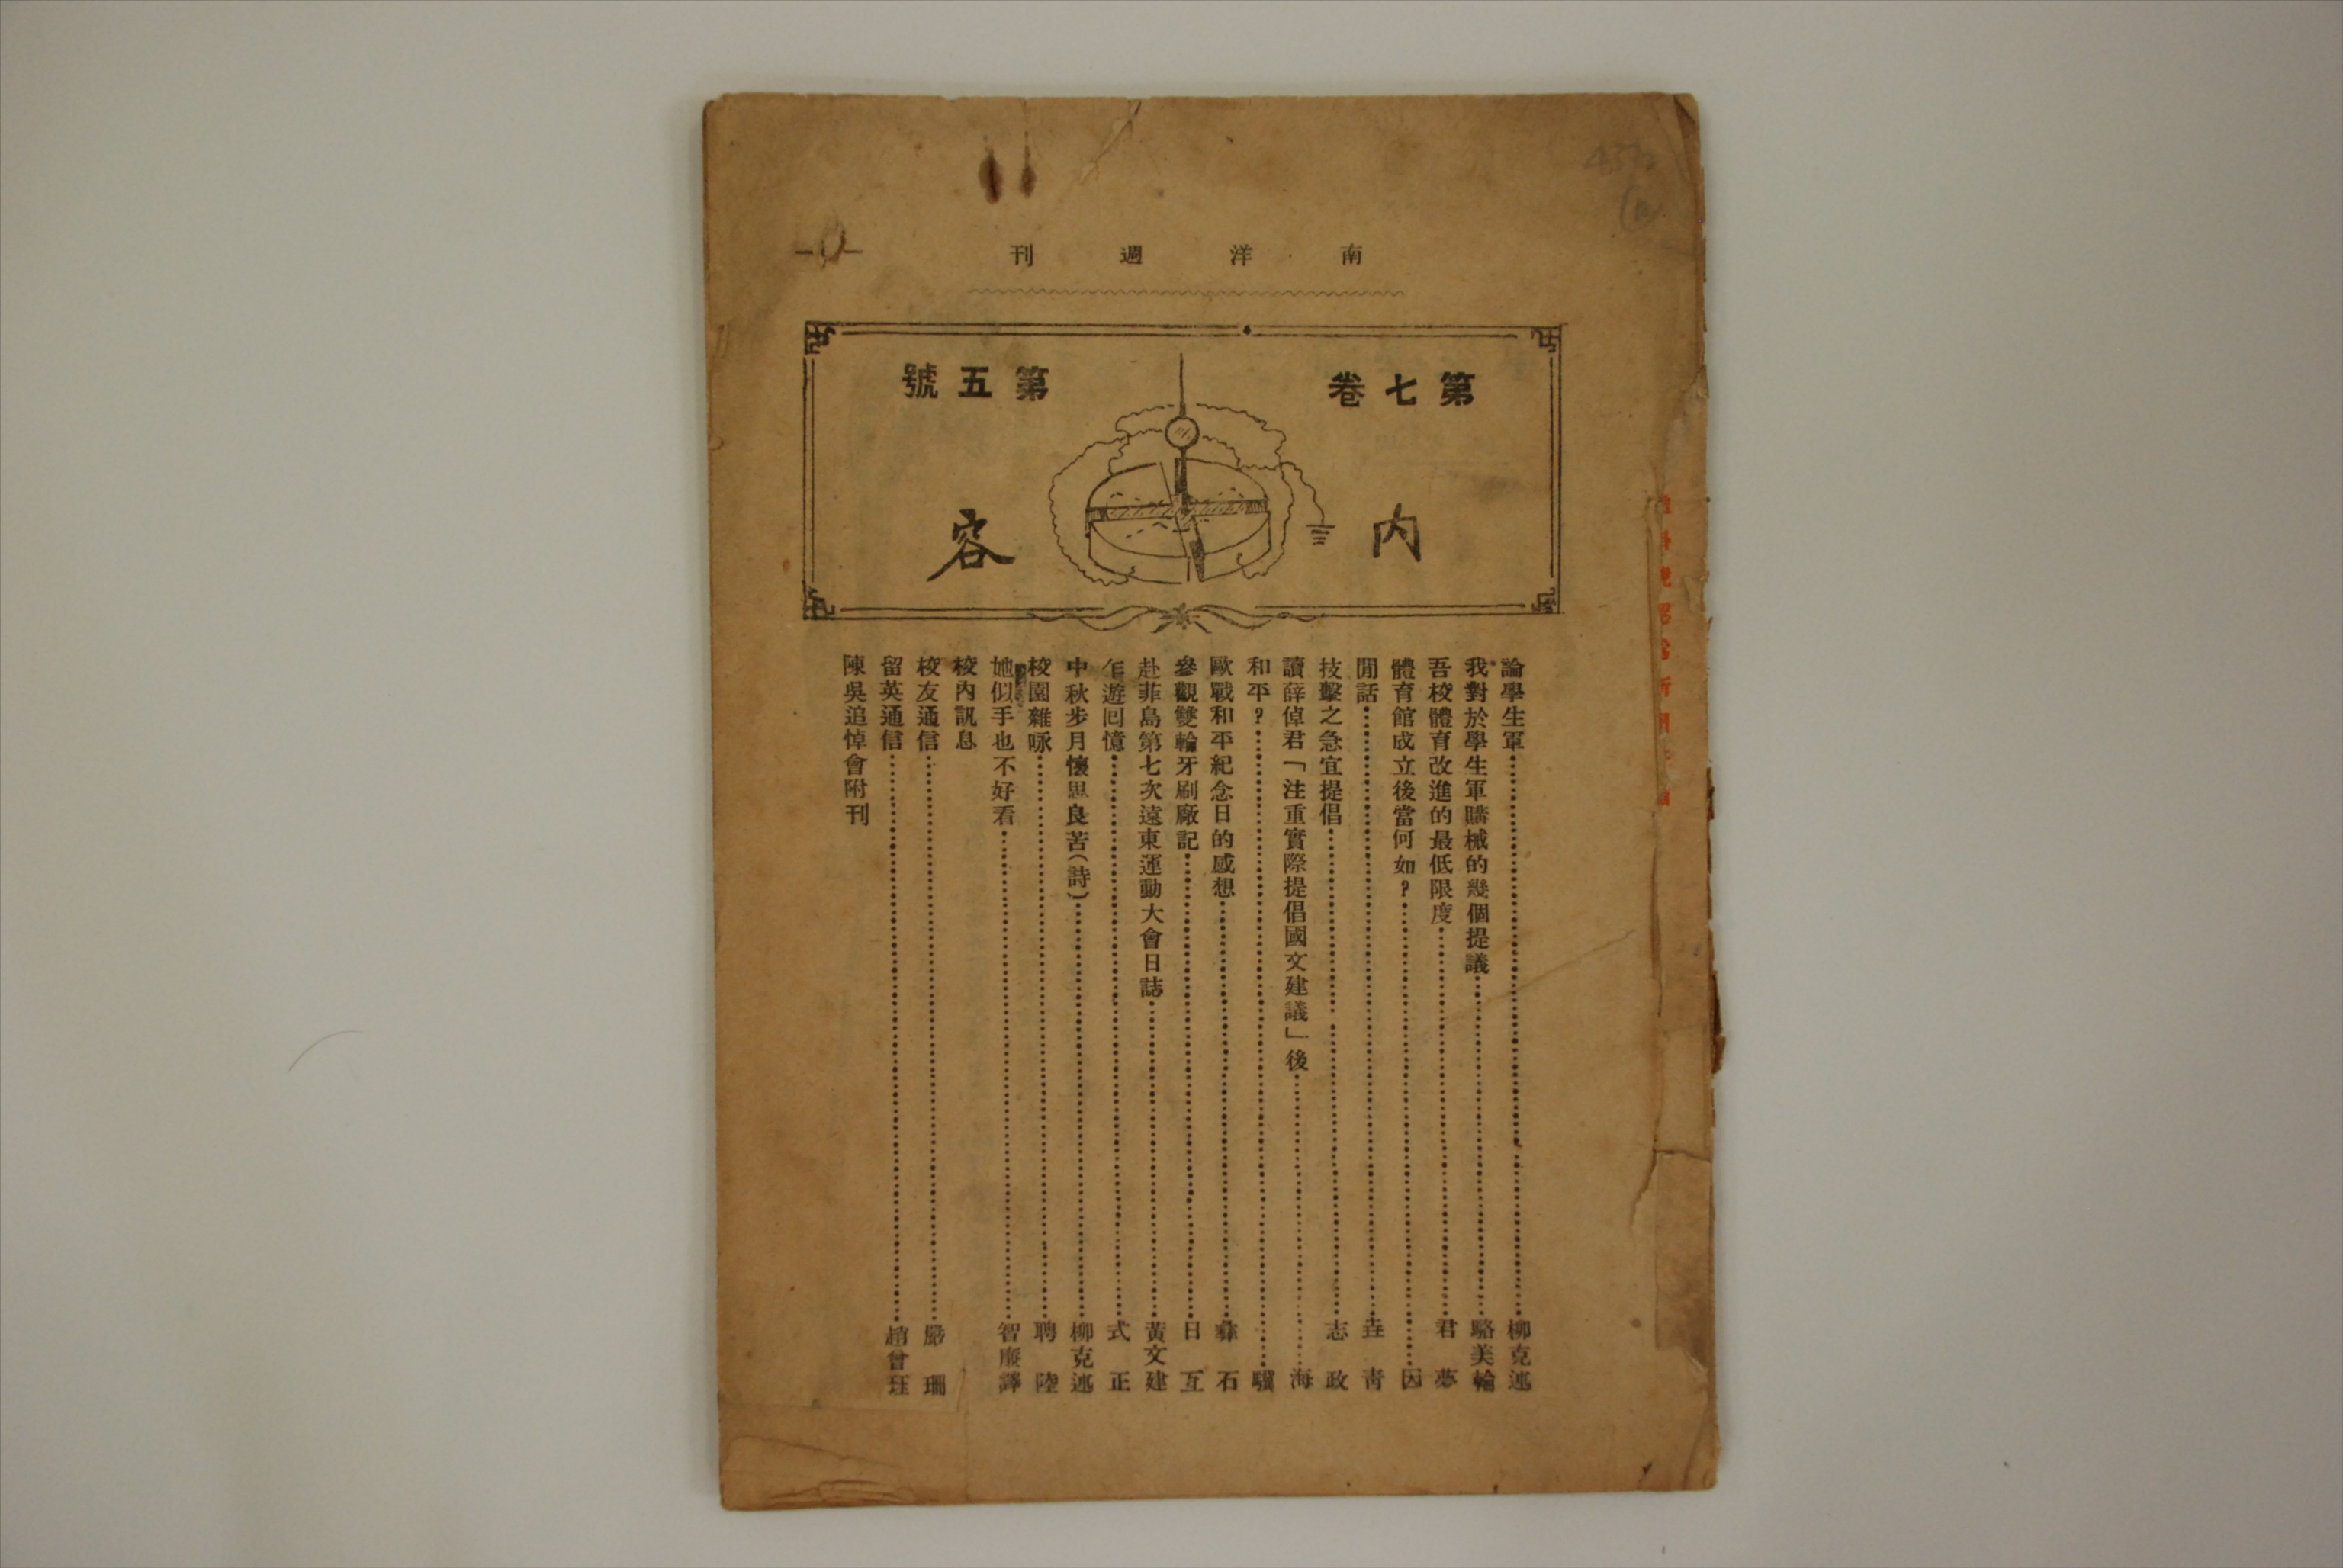 南洋週刊
第七卷
第五號
內容
論學生軍……柳克述
我對於學生軍購械的幾個提議……駱美輪
吾校體育改進的最低限度……君夢
體育館成立後當何如?……因
閒話……青
技擊之急宜提倡……志政
讀薛倬君「注重實際提倡國文建議」後……海
和平?……驥
歐戰和平紀念日的感想……彝石
參觀雙輪牙刷廠記……日互
赴菲島第七次遠東運動大會日誌……黃文建
乍遊回憶……式正
中秋步月懷思良苦(詩)……柳克述
校園雜咏……聘陸
她似乎也不好看……智廉譯
校內訊息
校友通信……嚴珊
留英通信……趙曾珏
陳吳追悼會附刊